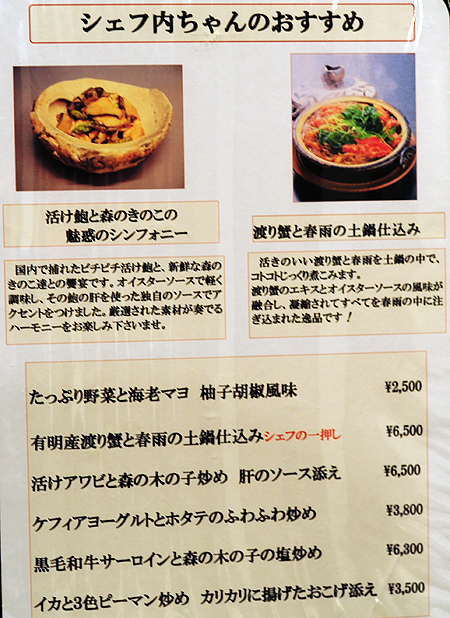 シェフ内ちゃんのおすすめ
活け鮑と森のきのこの
魅惑のシンフォニー
国内で捕れたピチピチ活け鮑と、新鮮な森の
きのこ達との饗宴です。オイスターソースで軽く
調味し、その鮑の肝を使った独自のソースでア
クセントをつけました。厳選された素材が奏でる
ハーモニーをお楽しみ下さいませ。
渡り蟹と春雨の土鍋仕込み
活きのいい渡り蟹と春雨を土鍋の中で、
コトコトじっくり煮こみます。
渡り蟹のエキスとオイスターソースの風味が
融合し、凝縮されてすべてを春雨の中に注
ぎ込まれた逸品です！
たっぷり野菜と海老マヨ 柚子胡椒風味 ¥2,500
有明産渡り蟹と春雨の土鍋仕込みシェフの一押し ¥6,500
活けアワビと森の木の子炒め 肝のソース添え ¥6,500
ケフィアヨーグルトとホタテのふわふわ炒め ¥3,800
黒毛和牛サーロインと森の木の子の塩炒め ¥6,300
イカと3色ピーマン炒め カリカリに揚げたおこげ添え ¥3,500